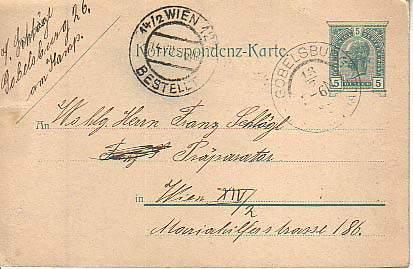 J. Schlögl
Gobelsburg 26.
am Kamp.
14/2 WIEN
BESTELLT
Korrespondenz-Karte
GOBELSBURG
5
5 5
An Wohlg. Herrn Franz Schlögl
Präparator
in Wien XIV/2
Mariahilferstrasse 186.